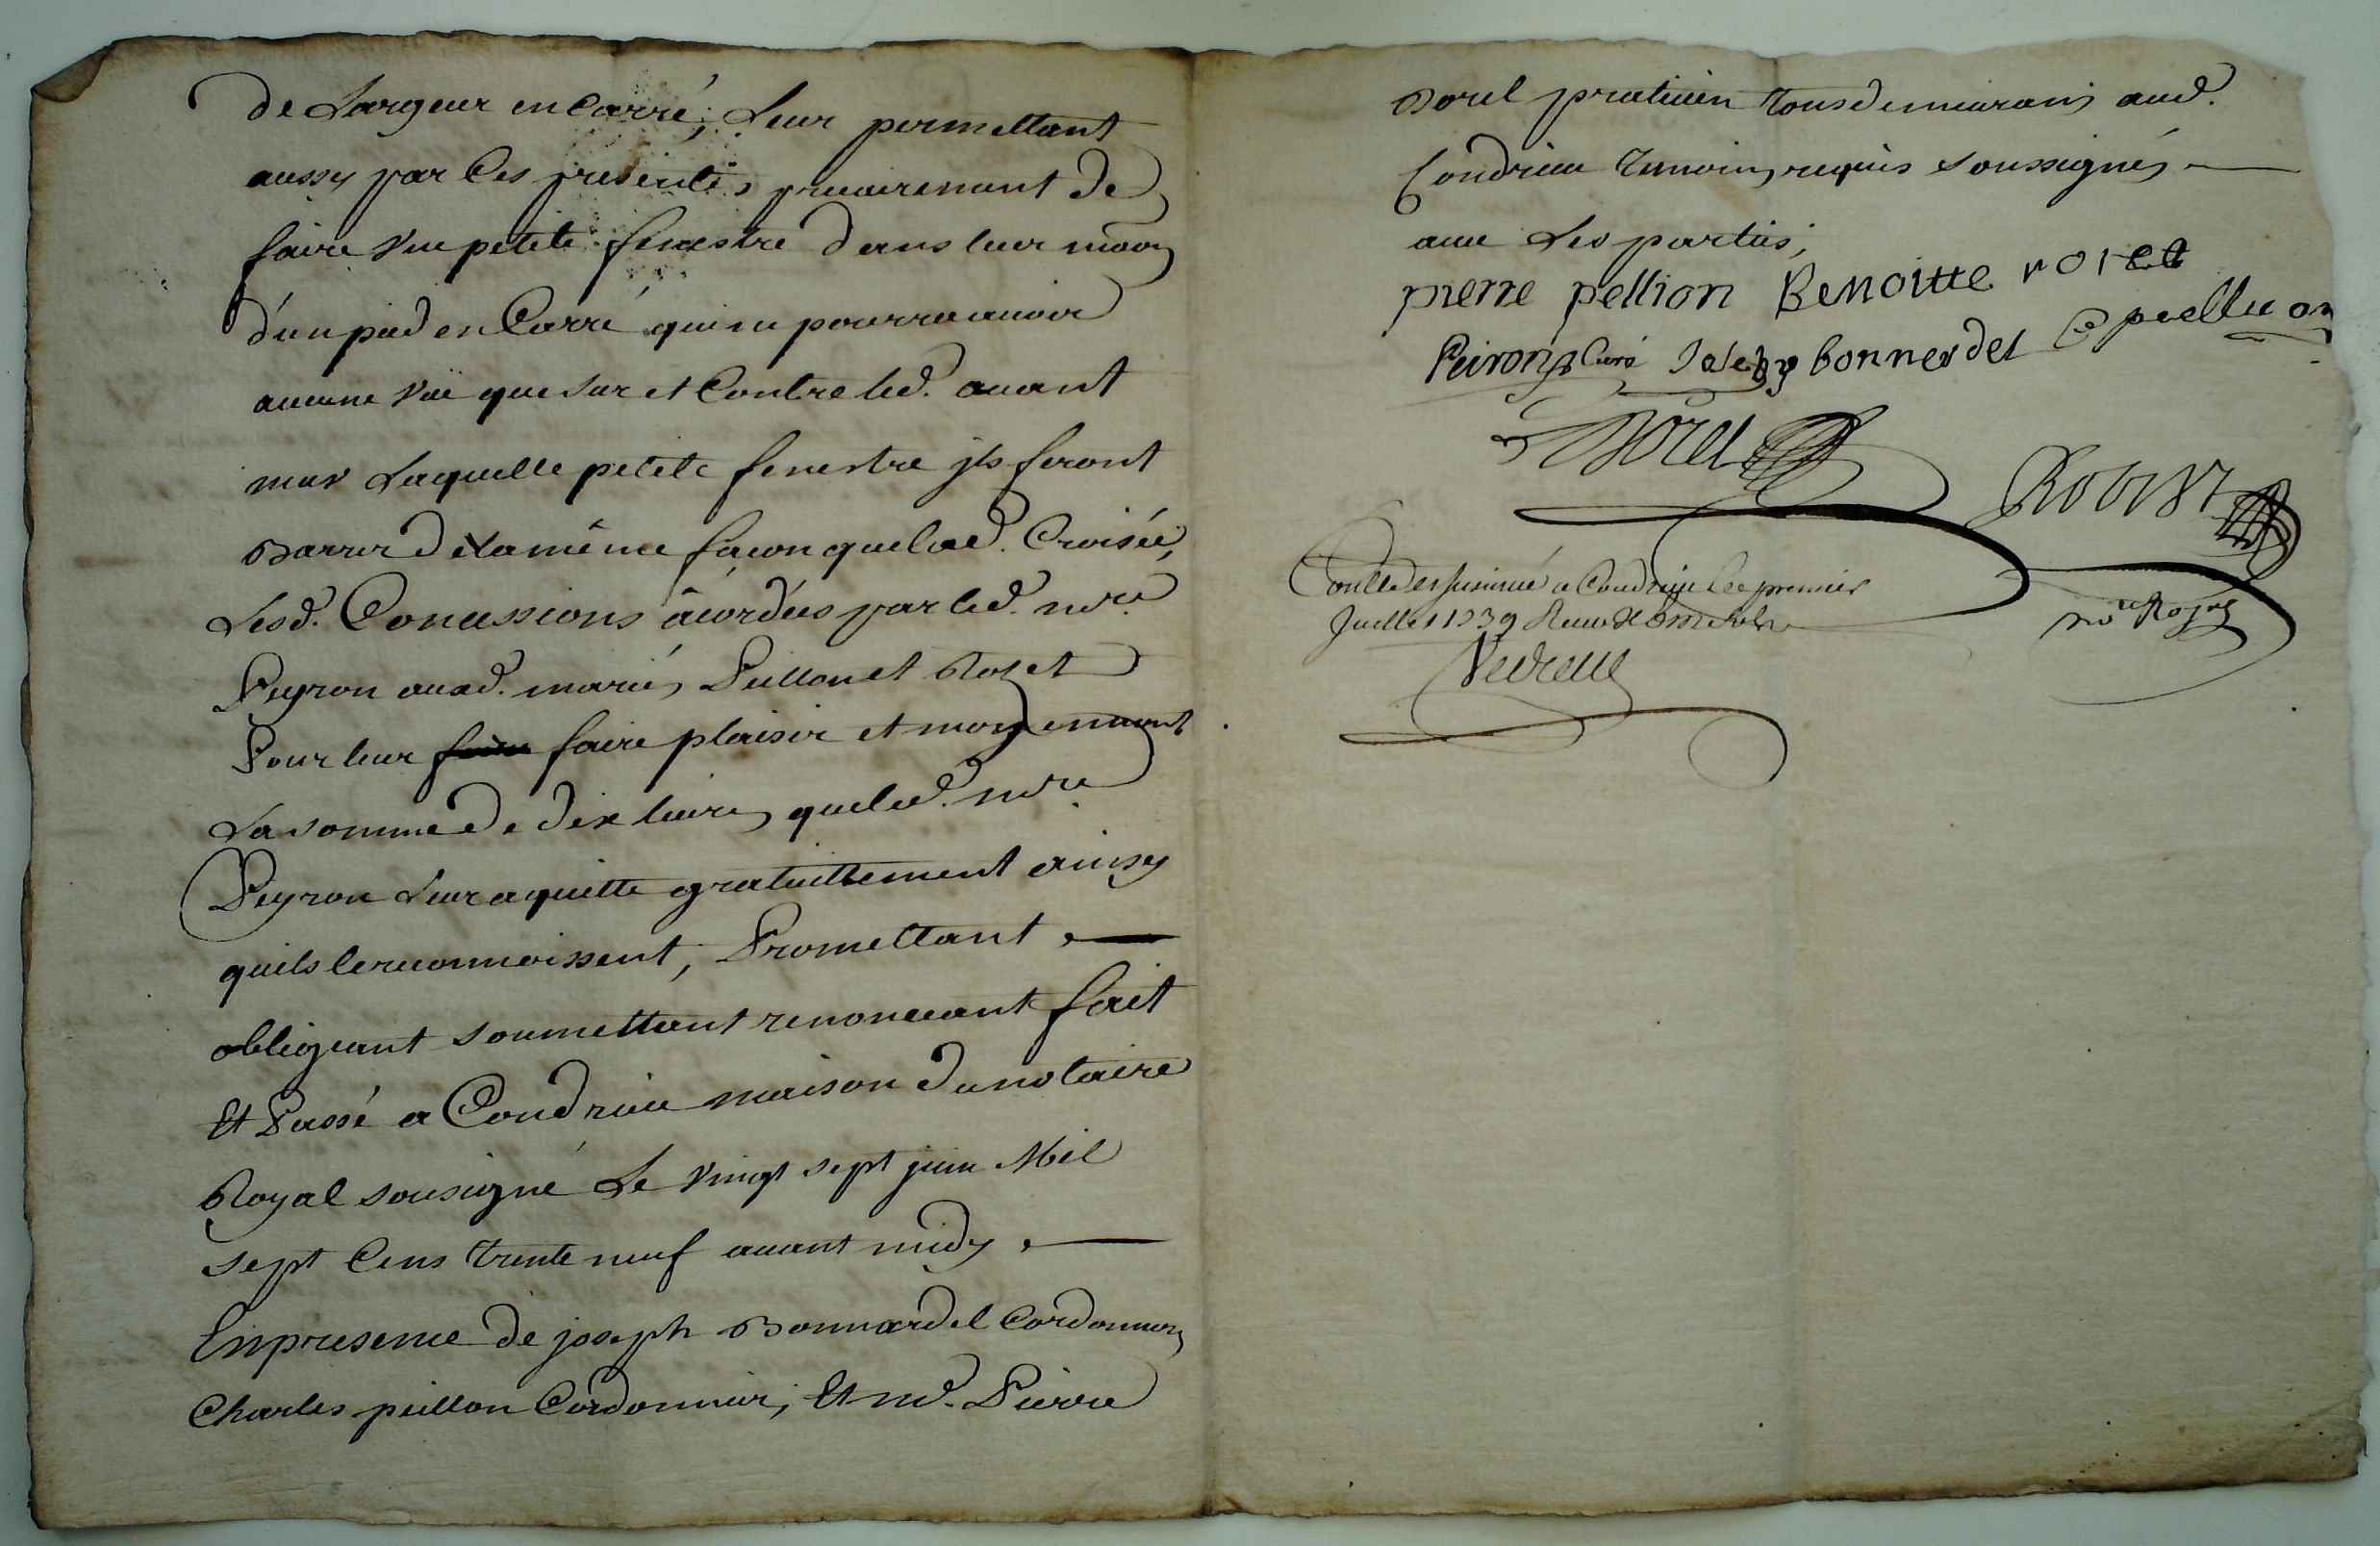 de Largeur en Carré; Leur permettant
aussy par Ces presentes precairement de
faire vne petite fenestre dans leur maõn
d'un pied en Carré qui ne pourra auoir
aucune vüe que sur et Contre led. auant
mur Laquelle petite fenestre jls feront
Barrer de la même façon que lad. Croisée,
Lesd. Concessions acordées par led. mre.
Peyron auxd. mariés Peillon et Rozet
Pour leur faire faire plaisir et moyennant
La somme de dix liures que led. mre
Peyron Leur aquitte gratuittement ainsy
quils le reconnoissent, Promettant
obligeant soumettant renonceant fait
Et Passé a Condrieu maison du notaire
Royal sousigné Le vingt sept juin Mil
sept Cens trente neuf auant midy
En presence de joseph Bonnardel Cordonnier
Charles peillon Cordonnier, Et me. Pierre
Borel praticien tous demeurans aud.
Condrieu temoins requis soussignés
auec Les parties;
pierre pellion Benoitte roset
Peiron Curé Joseph bonnerdel C peellion
Borel
Robert
Controllé et Insinué a Condrieu le premier
Juillet 1739 Receu
nore Royal